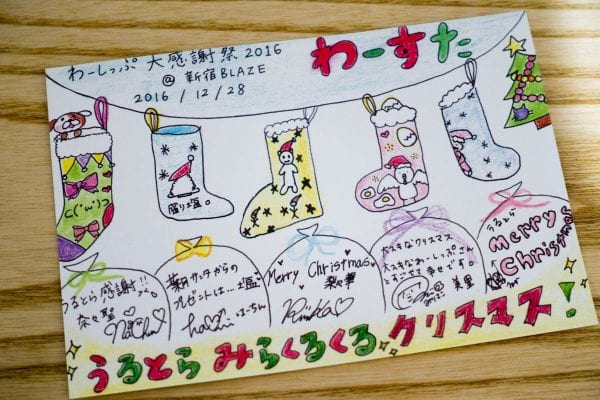 わーしっぷ 大感謝祭 2016
@ 新宿BLAZE
2016 / 12 / 28
わーすた
C(・'ω'・)つ
盛り塩。
うるとら感謝!!
奈々聖
葉月サンタからの
プレゼントは…塩
はーちん
Merry Christmas
梨華
大スキなクリスマス
大スキなわーしっぷさん
とすごせて幸せです
美里
うるとら
Merry
Christmas
うるとら みらくるくる クリスマス!